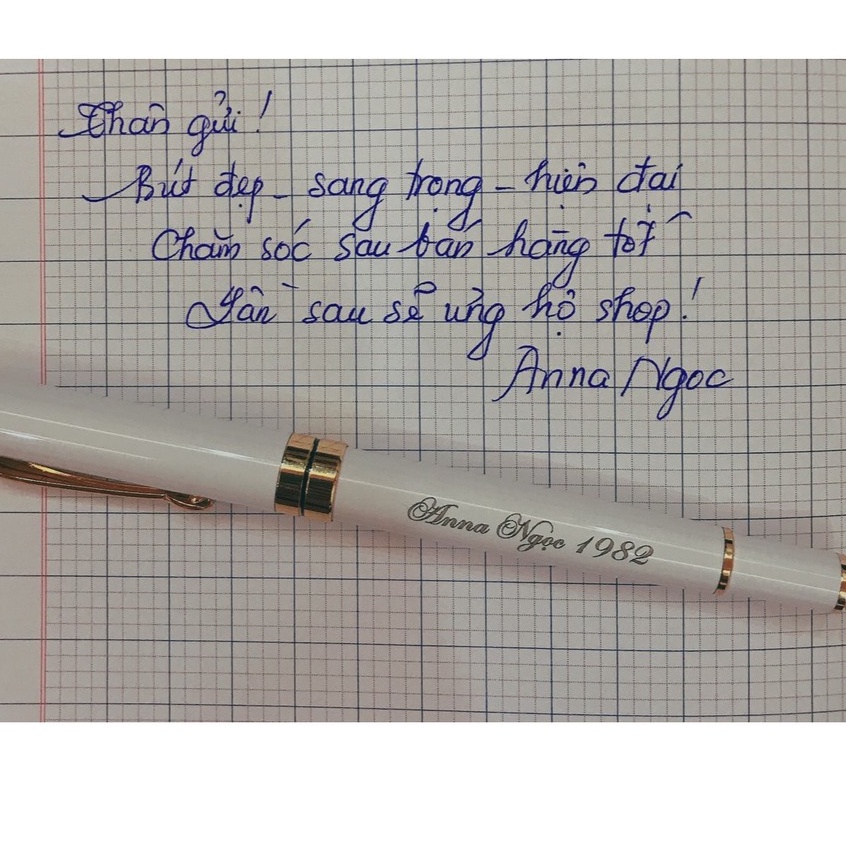 Thân gửi!
Bút đẹp - sang trọng - hiện đại
Chăm sóc sau bán hàng tốt
Lần sau sẽ ủng hộ shop!
Anna Ngọc
Anna Ngọc 1982